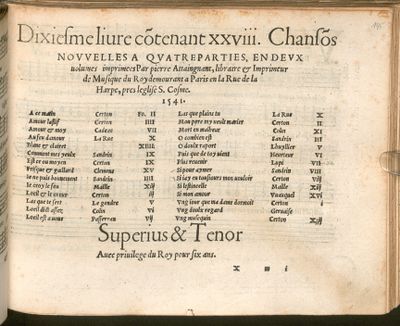 Dixiesme liure cõtenant xxviii. Chansõs
NOVVELLES A QVATRE PARTIES, EN DEVX
volumes imprimees Par pierre Attaingnant, libraire & Imprimeur
de Musique du Roy demourant a Paris en la Rue de la
Harpe, pres leglise S. Cosme.
1541.
A ce matin Certon Fo. II Las que plains tu La Rue X
Amour lassif Certon IIII Mon pere my veult marier Certon II
Amour & moy Cadeac VII Mort et malheur Colin XI
La Rue X O combien est Sandrin III
Blanc & clairet XIIII O doulx raport Lhuyllier V
Comment mes yeulx Sandrin IX Puis que de toy vient Heurteur VI
Est ce au moyen Certon IX Plus reuenir Lupi VII
Frisque & gaillard Clemens XV Si pour aymer Sandrin VIII
Ie ne puis bonnement Sandrin IIII Si iay eu tousiours mon vouloir Certon Vij
Ie croy le feu Maille Xij Maille Xij
Loeil & le cueur Certon ij Si mon amour XVI
Las que te sert Le gendre V Vng iour que ma dame dormoit Certon i
Loeil dict assez Colin VI Vng doulx regard Geruaise
Loeil est a vous Passereau Vij Vng musequin Certon
Superius & Tenor
Auec priuilege du Roy pour six ans.
X i